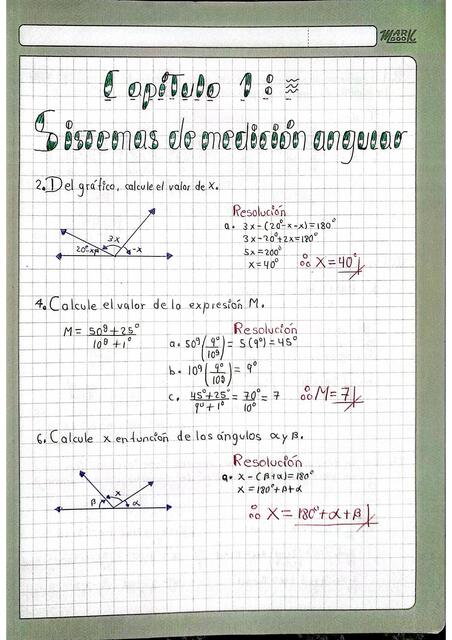 MARK
BOOK
Capítulo 1:
Sistemas de medición angular
2. Del gráfico, calcule el valor de x.
3x
20°-x
-x
Resolución
a. 3x-(20°-x-x)=180°
3x-20°+2x=180°
5x=200°
x=40°
∴ X=40°
4. Calcule el valor de la expresión M.
M = 50g+25°
10g+1°
Resolución
a. 50g (9°/10g) = 5(9°)=45°
b. 10g (9°/10g) = 9°
c. 45°+25°/9°+1° = 70°/10° = 7
∴ M=7
6. Calcule x en función de los ángulos α y β.
β
x
α
Resolución
a. x-(β+α)=180°
x=180°+β+α
∴ X=180°+α+β